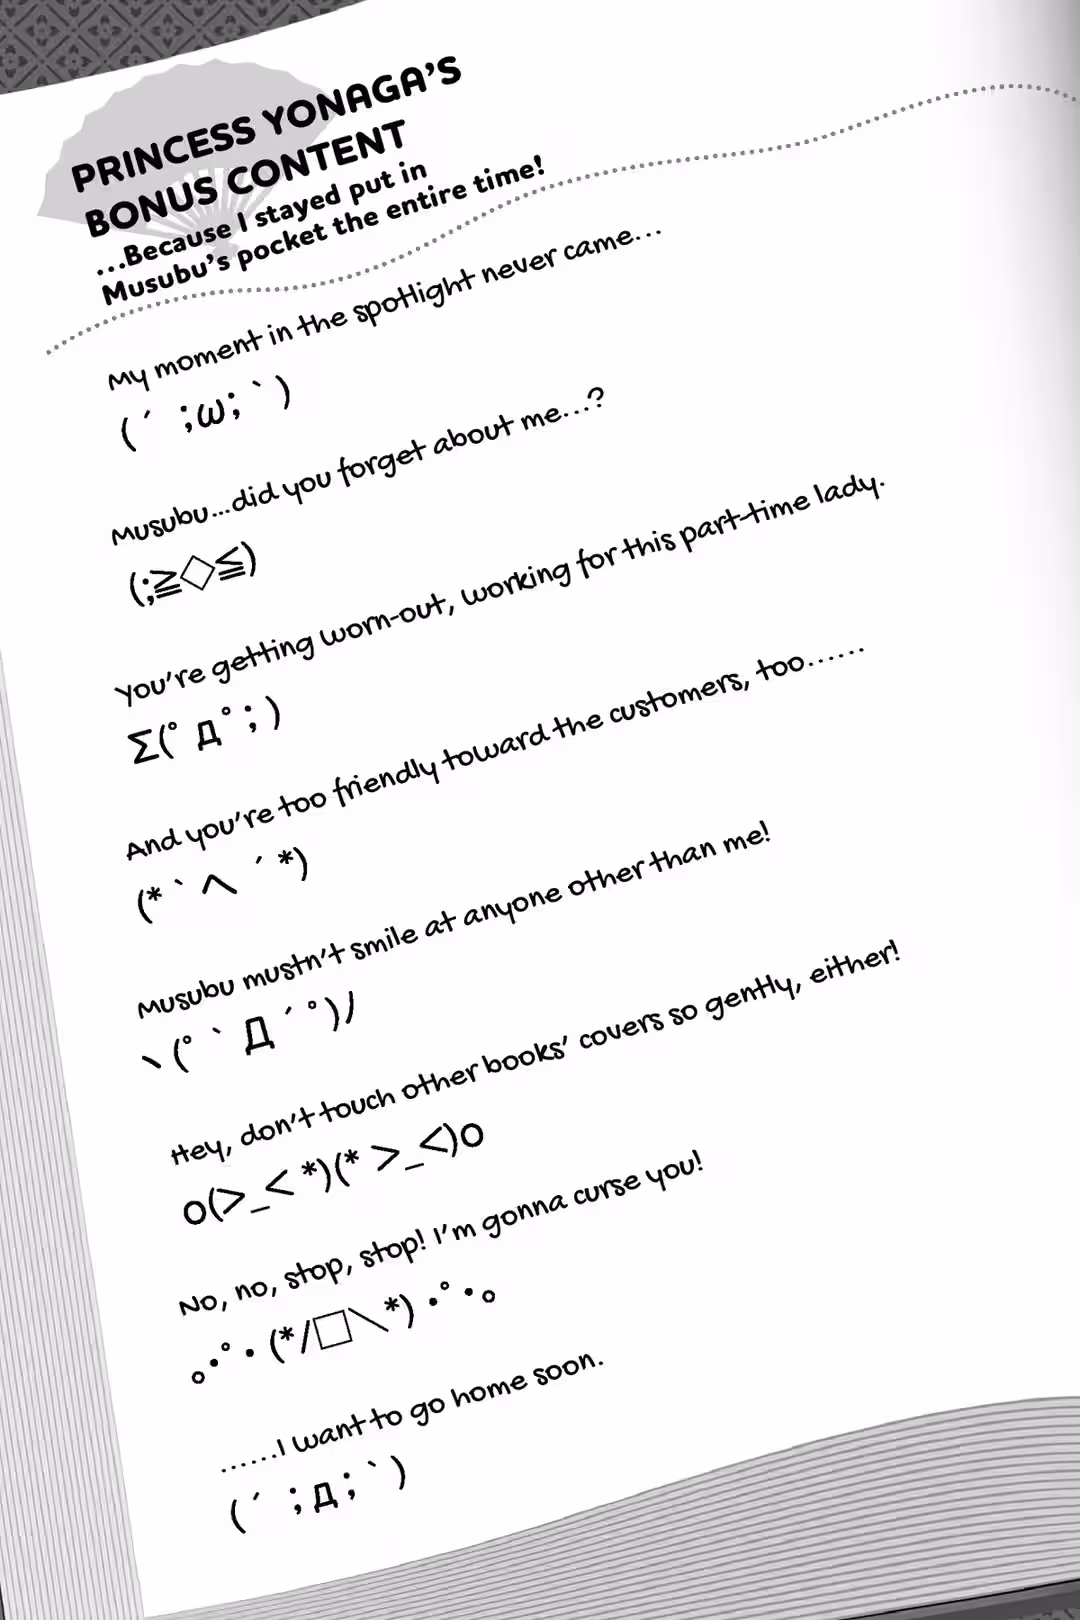 PRINCESS YONAGA'S
BONUS CONTENT
...Because I stayed put in
Musubu's pocket the entire time!
My moment in the spotlight never came...
(´ ;ω;｀)
Musubu...did you forget about me...?
(;≧◇≦)
You're getting worn-out, working for this part-time lady.
Σ(ﾟдﾟ;)
And you're too friendly toward the customers, too......
(*｀へ´*)
Musubu mustn't smile at anyone other than me!
ヽ(ﾟ｀Д´ﾟ)ﾉ
Hey, don't touch other books' covers so gently, either!
o(>_< *)(* >_<)o
No, no, stop, stop! I'm gonna curse you!
｡･ﾟ･(*/□＼*)･ﾟ･｡
......I want to go home soon.
(´;д;｀)